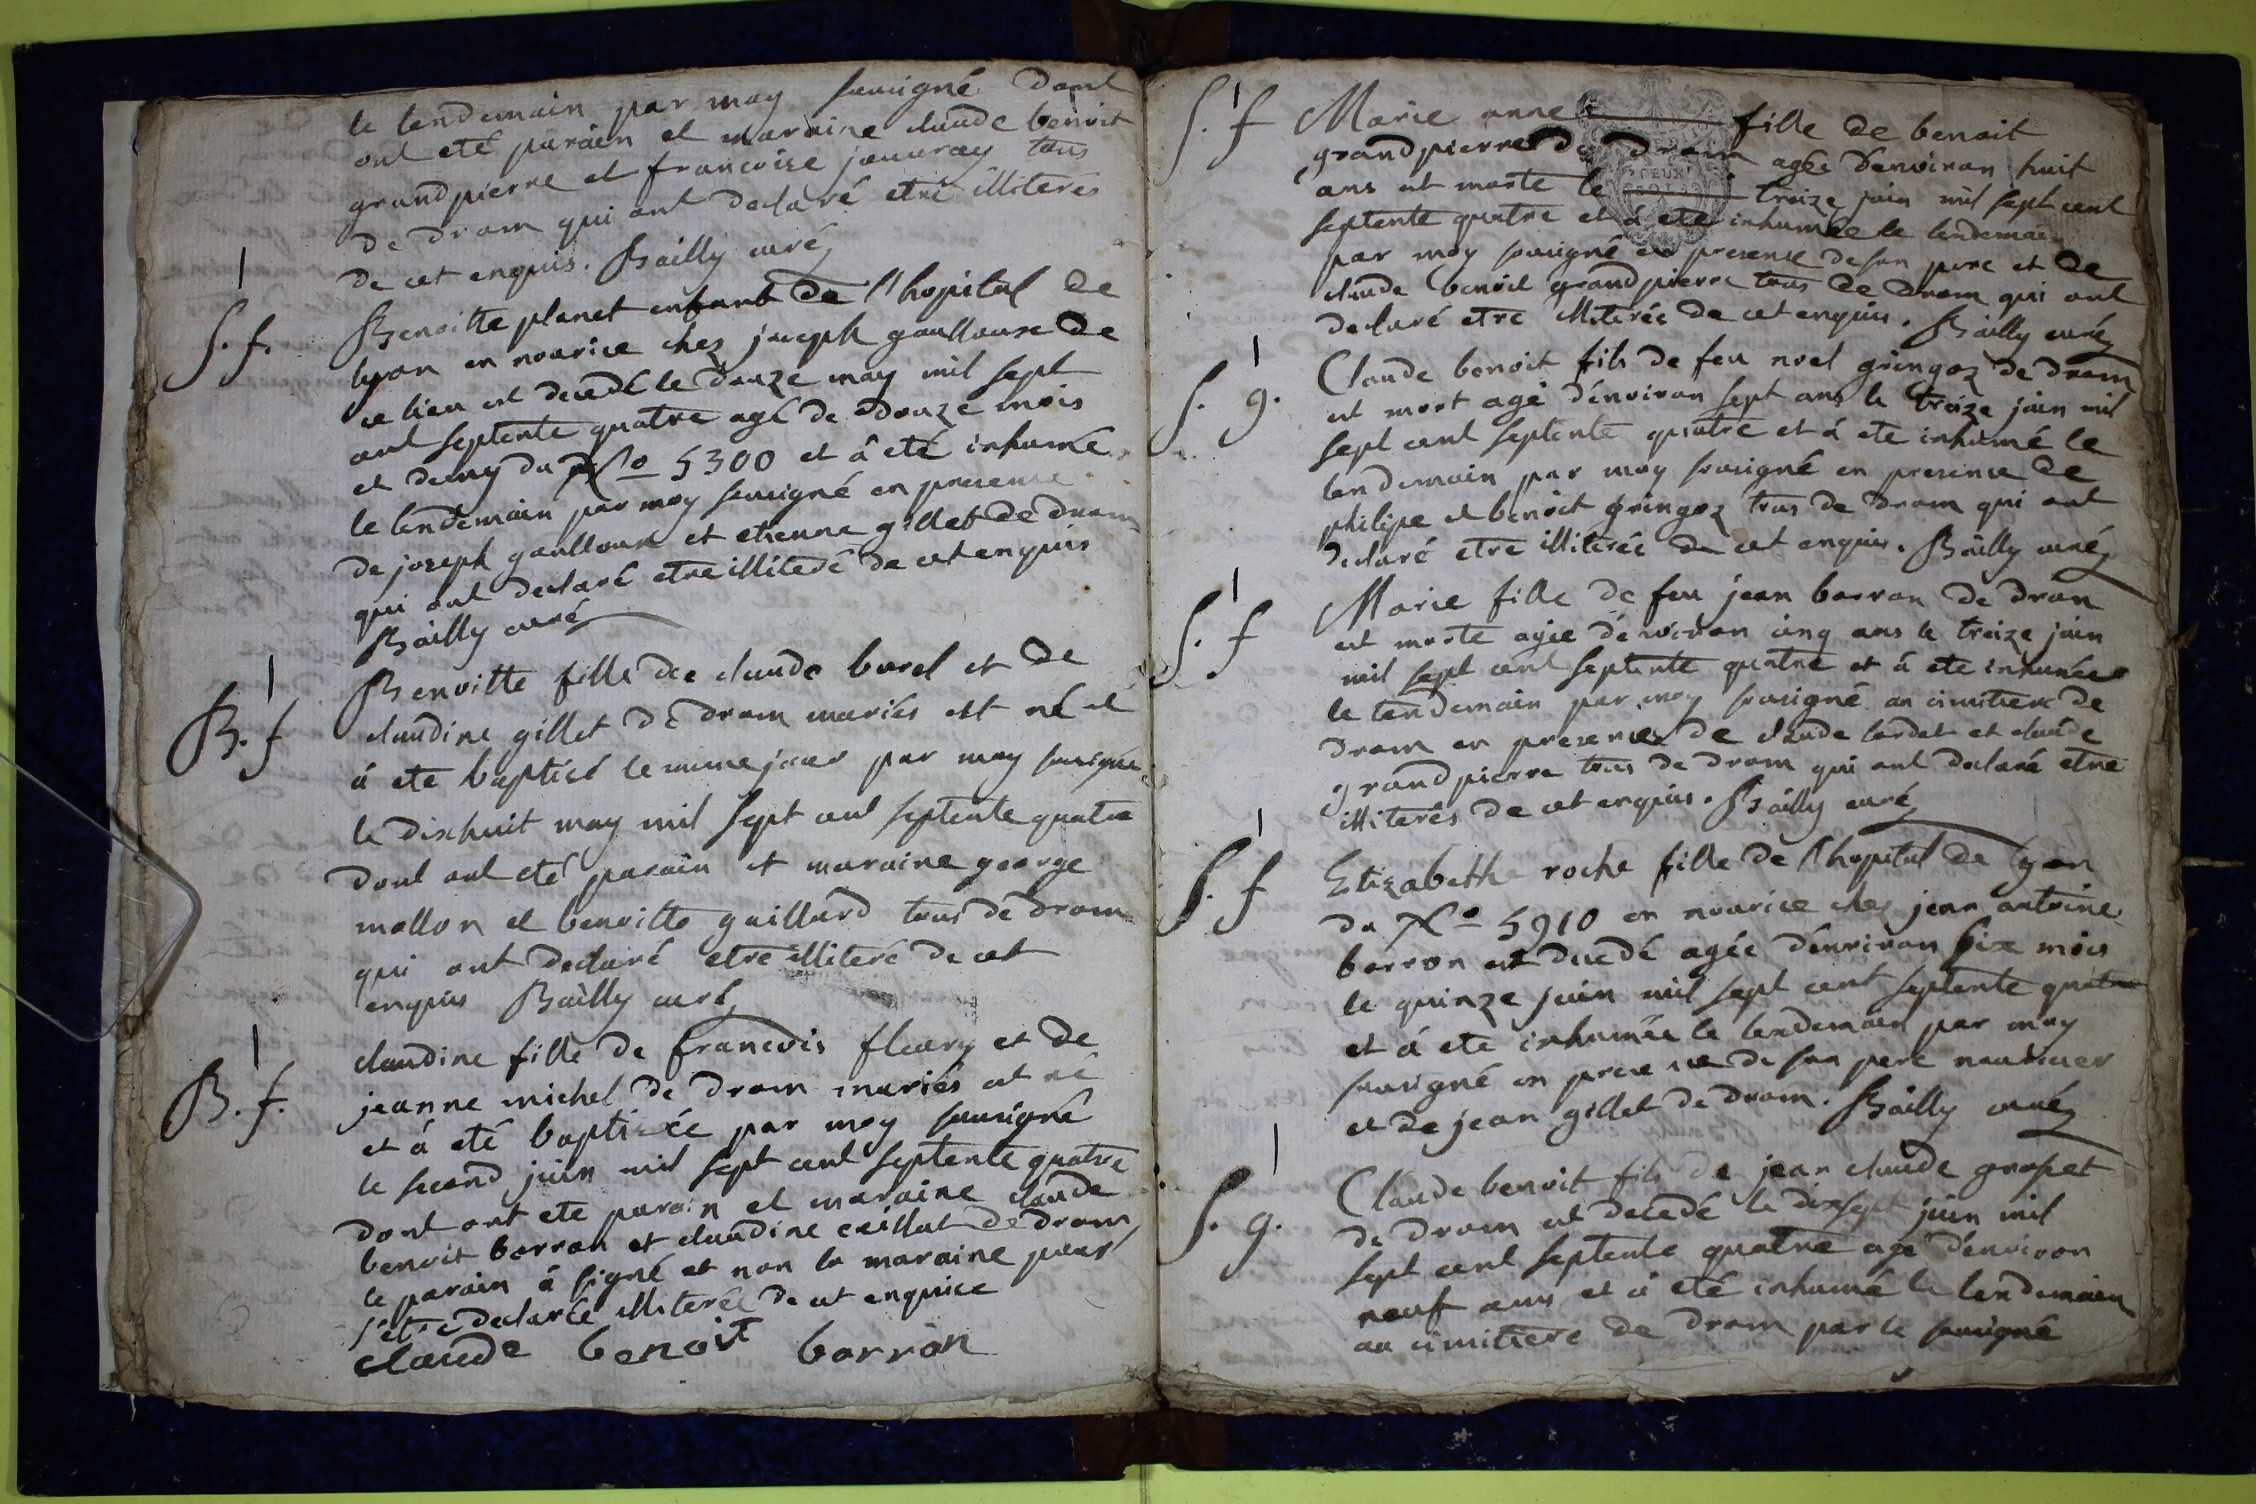 le lendemain par moy sousigné dont
ont eté parain et maraine claude benoit
grandpierre et francoise jouvray tous
de drom qui ont declaré etre illiterés
de cet enquis. Bailly curé
S. f.
Benoitte planet enfant de l'hopital de
lyon en nourice chez joseph goullouse de
ce lieu est decedé le douze may mil sept
cent septente quatre agé de douze mois
et demy du No 5300 et à eté inhumé
le lendemain par moy sousigné en presence
de joseph goullouse et etienne gillet de drom
qui ont declaré etre illiteré de cet enquis
Bailly curé
B. f
Benoitte fille de claude borel et de
claudine gillet de drom mariés est né et
à eté baptisé le meme jour par moy sousigné
le dixhuit may mil sept cent septente quatre
dont ont eté parain et maraine george
mollon et benoitte guillard tous de drom
qui ont declaré etre illiteré de cet
enquis Bailly curé
B. f.
claudine fille de francois fleury et de
jeanne michel de drom mariés est né
et à eté baptisée par moy sousigné
le second juin mil sept cent septente quatre
dont ont ete parain et maraine claude
benoit borron et claudine caillat de drom
le parain à signé et non la maraine pour
s'etre declarée illiterée de cet enquise
claude benoit borron
S. f
Marie anne fille de benoit
grandpierre de drom agée d'environ huit
ans est morte le treize juin mil sept cent
septente quatre et à eté inhumée le lendemain
par moy sousigné en presence de son pere et de
claude benoit grandpierre tous de drom qui ont
declaré etre illiterée de cet enquis. Bailly curé
S. g.
Claude benoit fils de feu noel gringoz de drom
est mort agé d'environ sept ans le treize juin mil
sept cent septente quatre et à ete inhumé le
lendemain par moy sousigné en presence de
philipe et benoit gringoz tous de drom qui ont
declaré etre illiterée de cet enquis. Bailly curé
S. f
Marie fille de feu jean borron de drom
est morte agée d'environ cinq ans le treize juin
mil sept cent septente quatre et à ete inhumée
le lendemain par moy sousigné au cimitiere de
drom en presence de claude lardet et claude
grandpierre tous de drom qui ont declaré etre
illiterés de cet enquis. Bailly curé
S. f
Elizabethe roche fille de l'hopital de lyon
du No 5910 en nourice chez jean antoine
borron est decedé agée d'environ six mois
le quinze juin mil sept cent septente quatre
et à ete inhumée le lendemain par moy
sousigné en presence de son pere nouricier
et de jean gillet de drom. Bailly curé
S. g.
Claude benoit fils de jean claude grospet
de drom est decedé le dixsept juin mil
sept cent septente quatre agé d'environ
neuf ans et à eté inhumé le lendemain
au cimitiere de drom par le sousigné